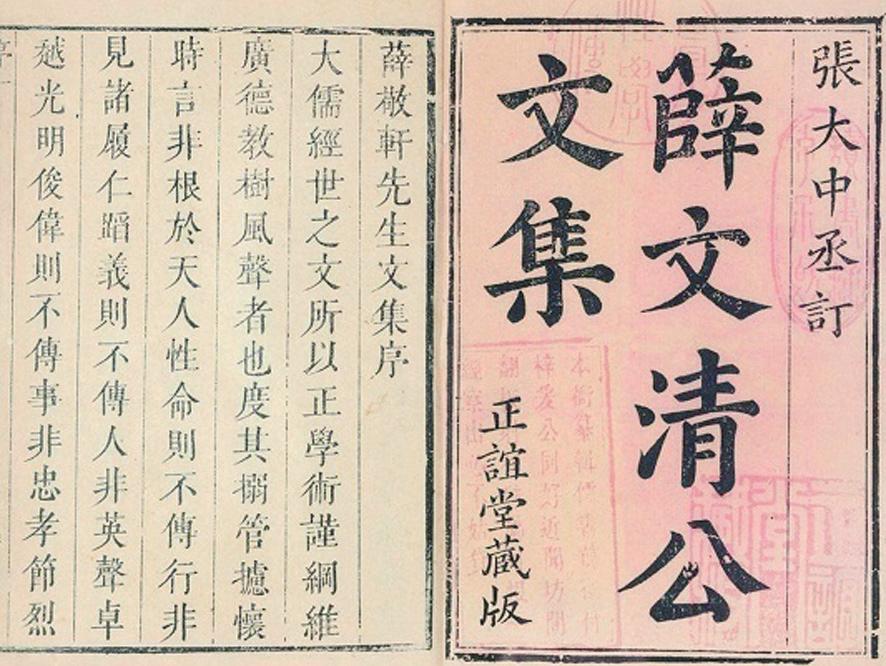 張大中丞訂
薛文清公
文集
正誼堂藏版
薛敬軒先生文集序
大儒經世之文所以正學術謹綱維
廣德教樹風聲者也度其搦管攄懷
時言非根於天人性命則不傳行非
見諸履仁蹈義則不傳人非英聲卓
越光明俊偉則不傳事非忠孝節烈